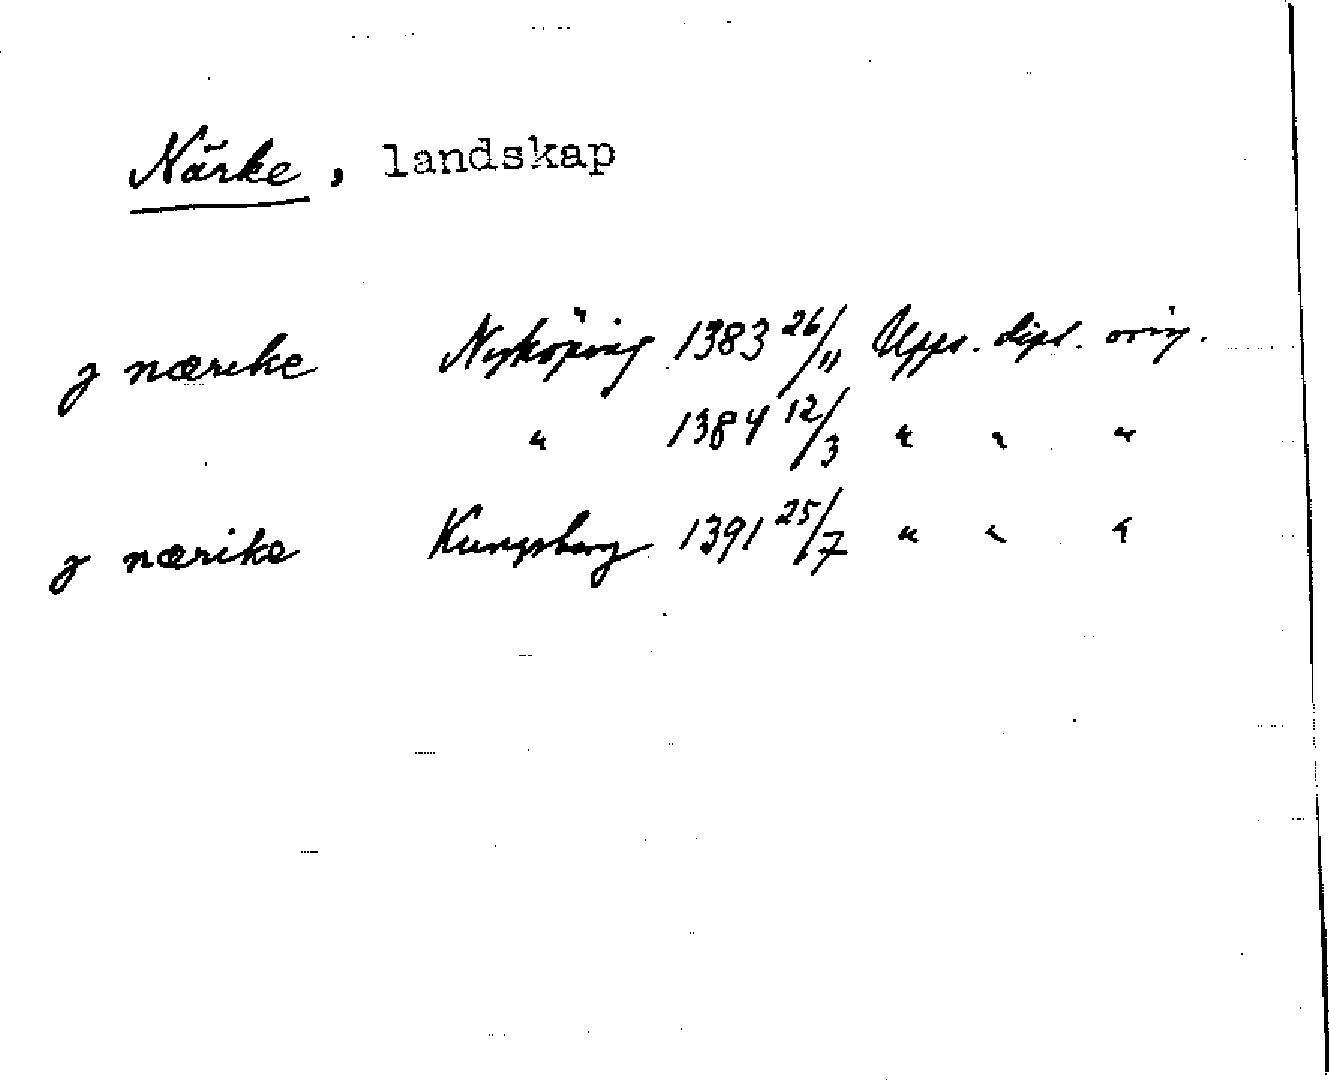 Närke, landskap
J nærike Nyköping 1383 26/11 Upps. dipl. orig.
" 1384 12/3 " " "
J nærike Kungsberg 1391 25/7 " " "